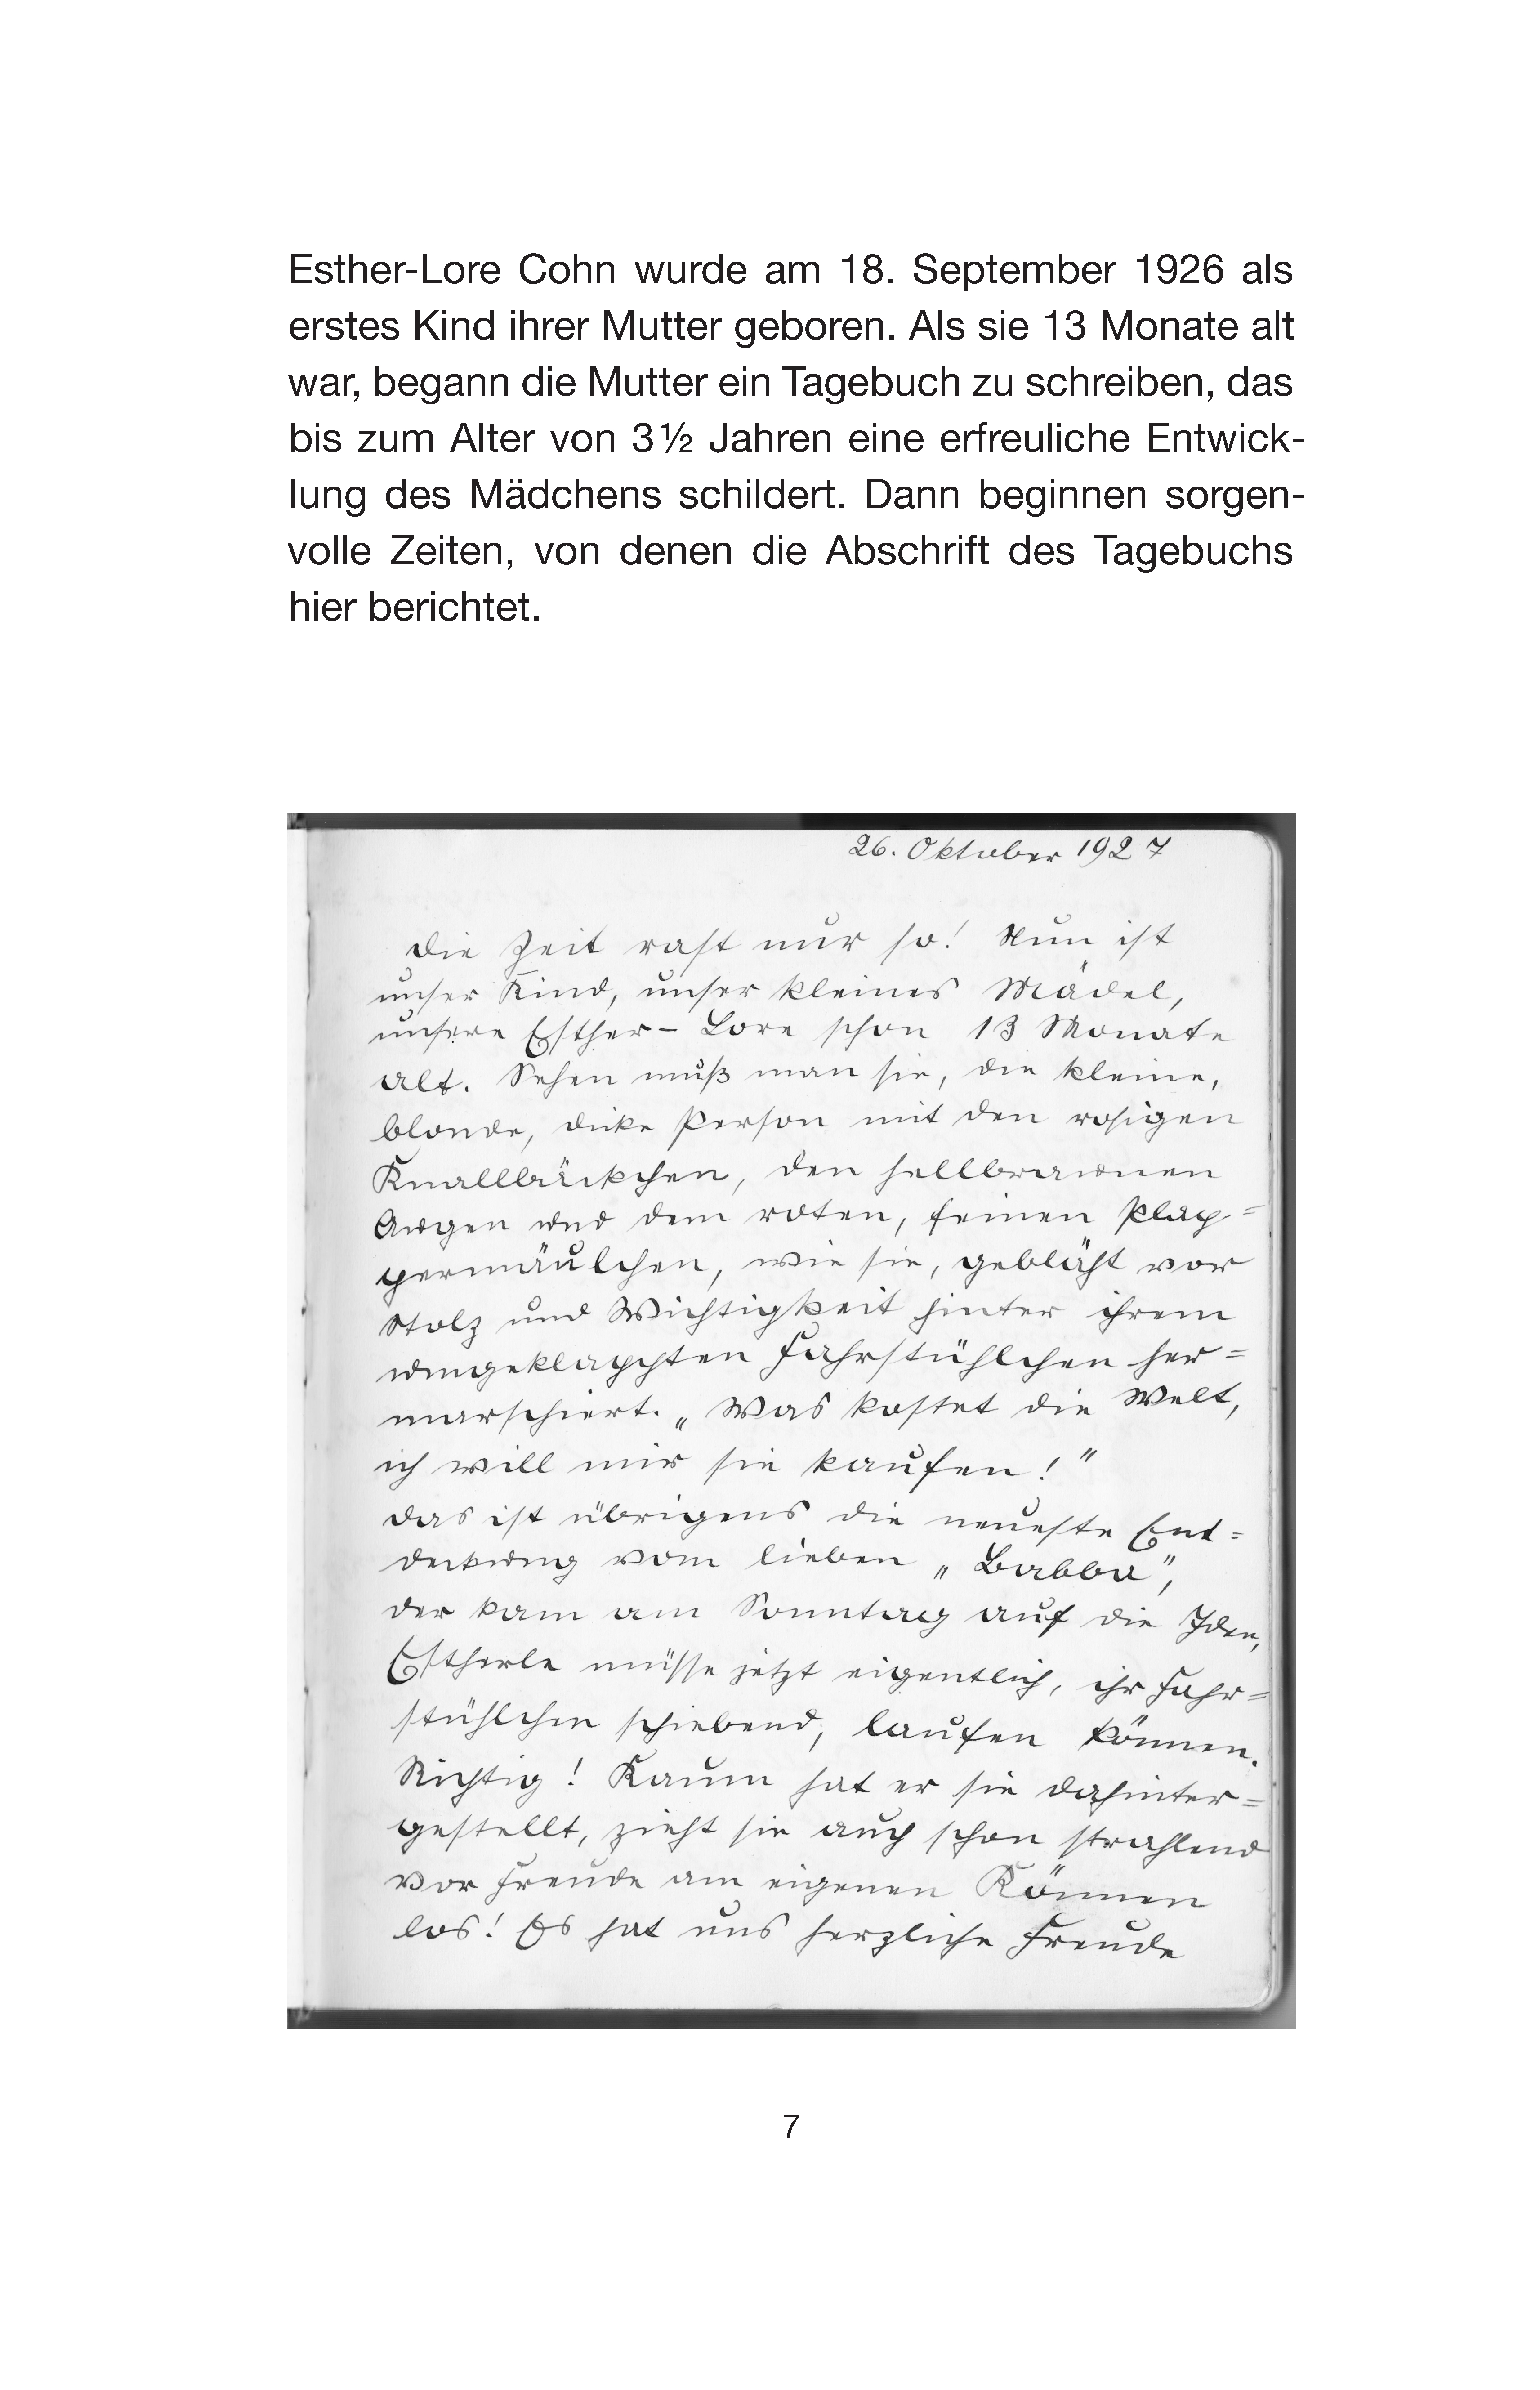 Esther-Lore Cohn wurde am 18. September 1926 als
erstes Kind ihrer Mutter geboren. Als sie 13 Monate alt
war, begann die Mutter ein Tagebuch zu schreiben, das
bis zum Alter von 3 ½ Jahren eine erfreuliche Entwick-
lung des Mädchens schildert. Dann beginnen sorgen-
volle Zeiten, von denen die Abschrift des Tagebuchs
hier berichtet.
26. Oktober 1927
Die Zeit rast nur so! Nun ist
unser Kind, unser kleines Mädel,
unsere Esther-Lore schon 13 Monate
alt. Sehen muß man sie, die kleine,
blonde, dicke Person mit den rosigen
Knallbäckchen, den hellbraunen
Augen und dem roten, feinen Plap=
permäulchen, wie sie, gebläht vor
Stolz und Wichtigkeit hinter ihrem
umgeklappten Fahrstühlchen her=
marschiert. „Was kostet die Welt,
ich will mir sie kaufen!"
Das ist übrigens die neueste Ent=
deckung vom lieben „Babba",
der kam am Sonntag auf die Idee,
Estherle müsse jetzt eigentlich, ihr Fahr=
stühlchen schiebend, laufen können.
Richtig! Kaum hat er sie dahinter=
gestellt, zieht sie auch schon strahlend
vor Freude am eigenen Können
los! Es hat uns herzliche Freude
7